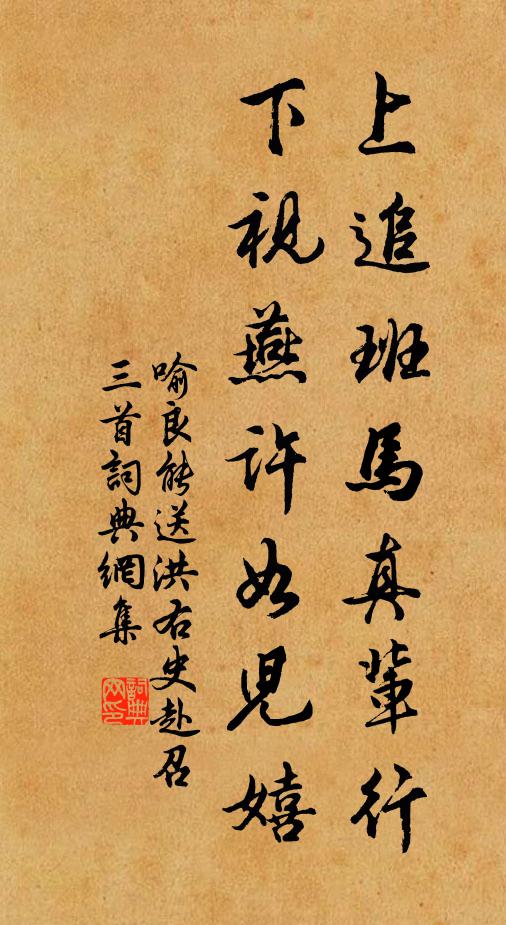 上追班馬真輩行
下視燕許如兒嬉
喻良能送洪右史赴召
三首詞典網集
詞典
网印